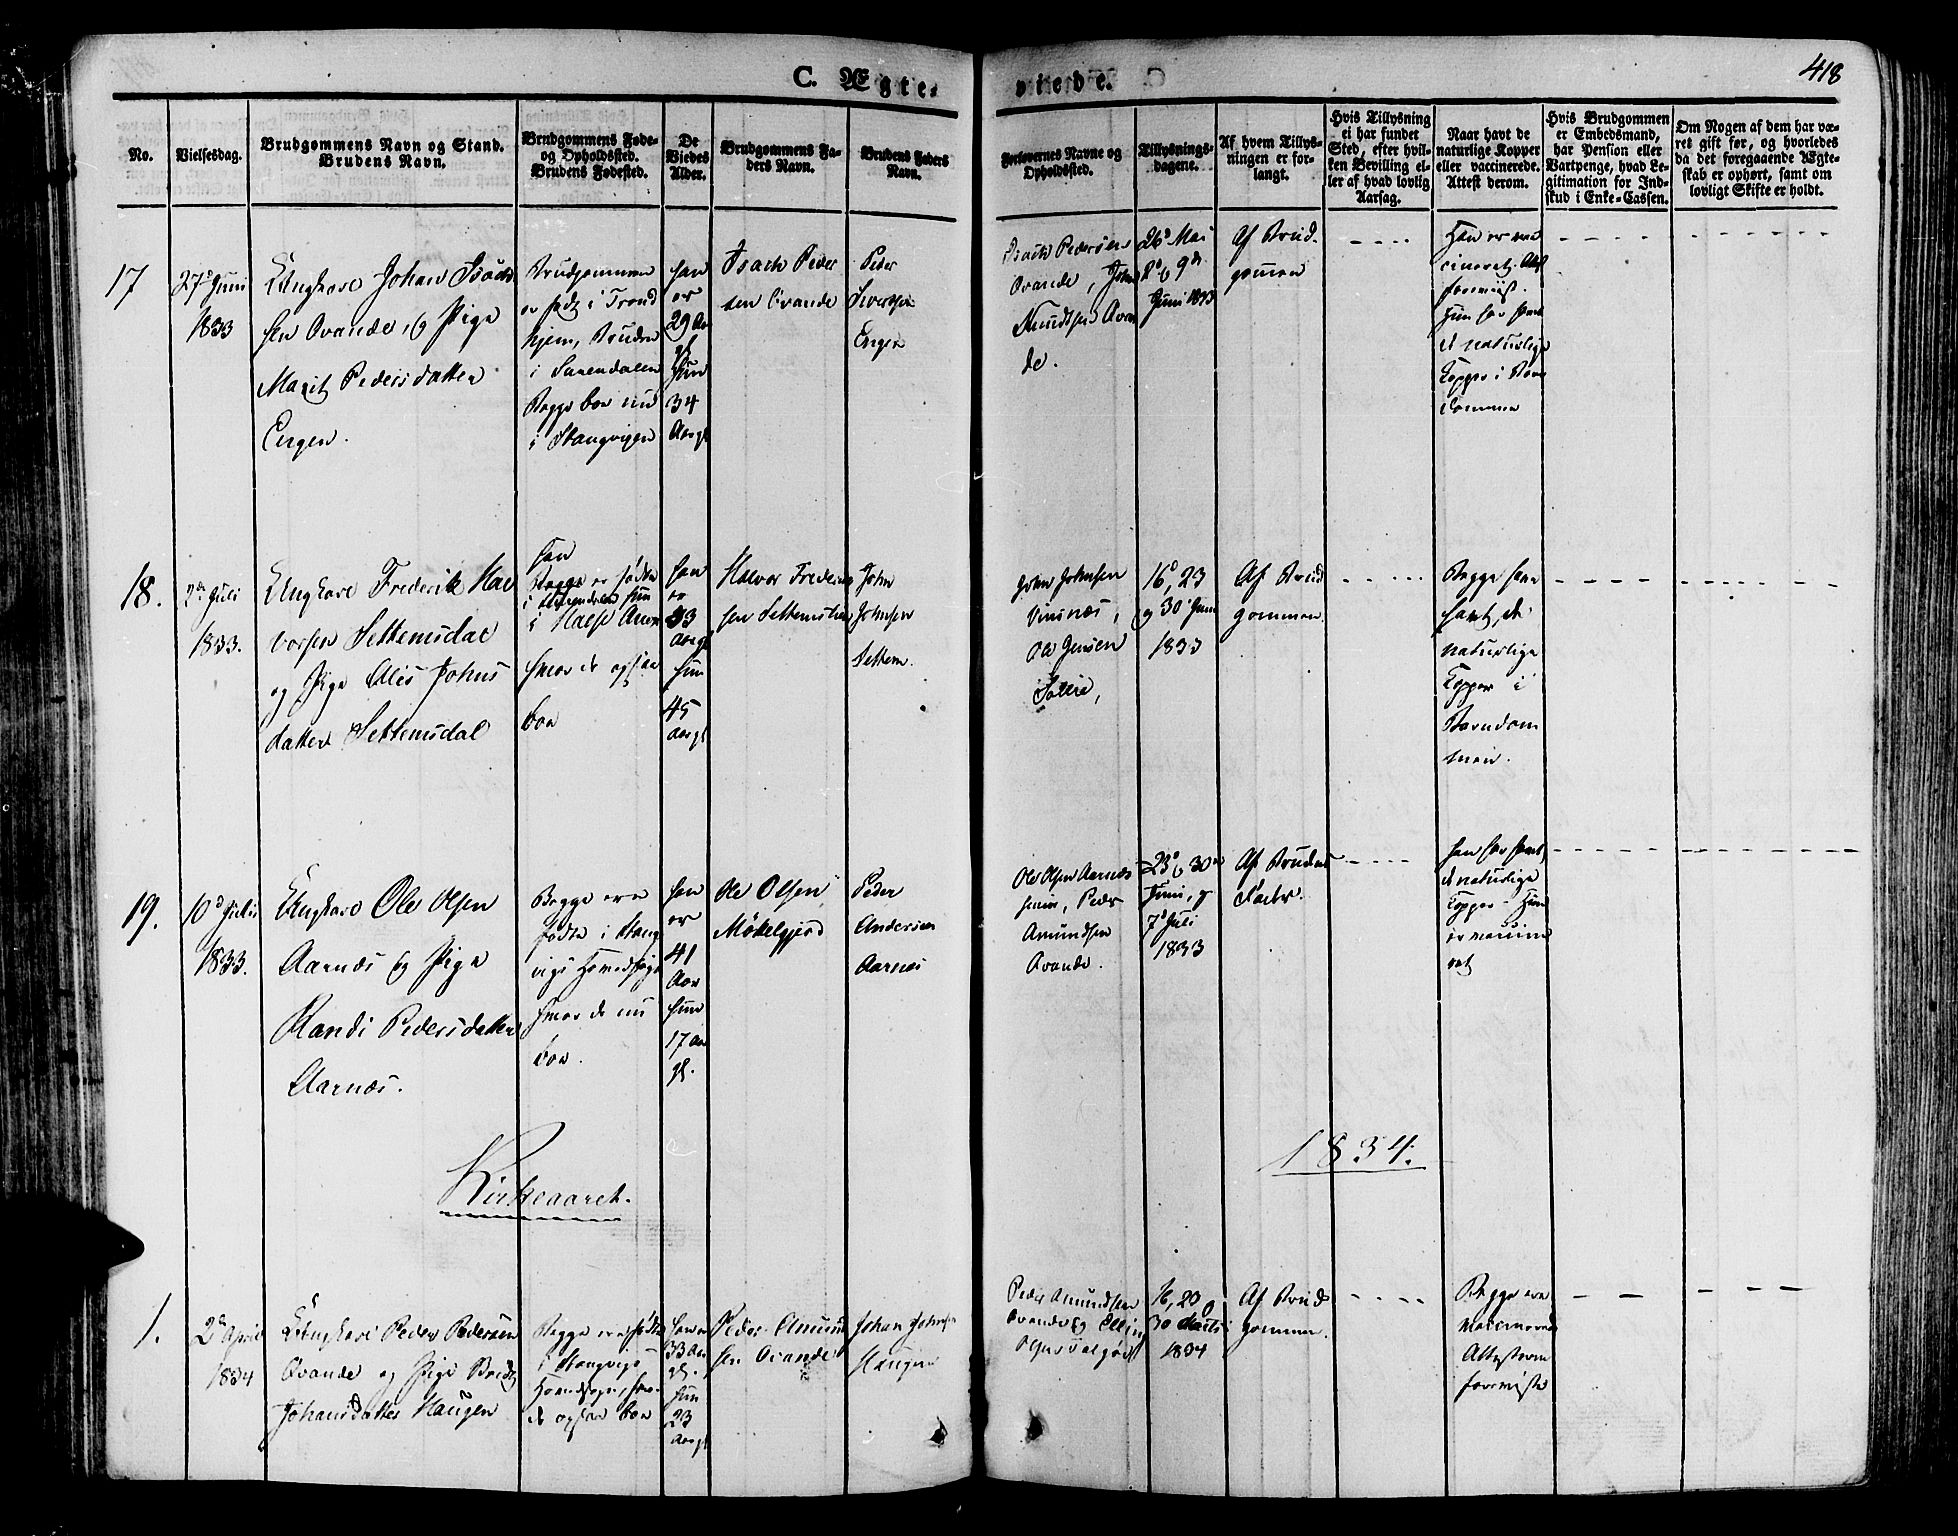 418
C. Ægte-
viede.
No.
Vielsesdag.
Brudgommens Navn og Stand.
Brudens Navn.
Brudgommens Føde-
og Opholdssted.
Brudens Fødested.
De
Viedes
Alder.
Brudgommens Fa-
ders Navn.
Brudens Faders
Navn.
Forlovernes Navne og
Opholdssted.
Tillysnings-
dagene.
Af hvem Tillys-
ningen er for-
langt.
Hvis Tillysning
ei har fundet
Sted, efter hvil-
ken Bevilling el-
ler af hvad lovlig
Aarsag.
Naar havt de
naturlige Kopper
eller vaccinerede.
Attest derom.
Hvis Brudgommen
er Embedsmand,
har Pension eller
Vartpenge, hvad Le-
gitimation for Ind-
skud i Enke-Cassen.
Om Nogen af dem har væ-
ret gift før, og hvorledes
da det foregaaende Ægte-
skab er ophørt, samt om
lovligt Skifte er holdt.
17
27d Juni
1833
Ungkarl Johan Isach
sen Qvande, og Pige
Marit Pedersdatter
Engen.
Brudgommen
er født i Trond
hjem, Bruden
i Surendalen
Begge boe nu
i Stangvigen
han
er
29 Aar
gl.
hun
34
Aargl
Isach Peder
sen Qvande
Peder
Iversen
Engen
Isach Pedersen
Qvande, John
Knudtsen Qvan
de.
26d Mai
2d og 9d
Juni 1833
Af Brud-
gommen
Han er vac
cineret. Att.
foreviist.
Hun har havt
de naturlige
Kopper i Barn
dommen
18.
2den Juli
1833.
Ungkarl Frederik Hal
vorsen Settemsdal
og Pige Olis Johns
datter Settemsdal
han
Begge er fødte
i Surendalen hun
i Halse Annex
hvor de ogsaa
boe
han
er
33
Aargl
hun
45
Aargl
Halvor Frederik
sen Settemsdal
John
Johnsen
Settem.
John Johnsen
Ole Jensen
16d, 23
og 30 Juni
1833
Af Brud
gommen
Begge have
havt de
naturlige
Kopper i
Barndom
men.
19.
10d Juli
1833.
Ungkarl Ole Olsen
Aarnæs og Pige
Randi Pedersdatter
Aarnæs.
Begge ere
fødte i Stang
vigs Hovedsogn
hvor de nu
boe.
han
er
41
Aar
hun
17 Aar
gl.
Ole Olsen
Møkelgjerd
Peder
Andersen
Aarnæs
Ole Olsen Aarnæs
Peder
Amundsen
Qvande.
23d og 30te
Juni, og
7d Juli
1833
Af Brudens
Fader.
Han har havt
de naturlige
Kopper - Hun
er vaccine
ret
Kirkeaaret.
1834.
1.
2d April
1834
Ungkarl Peder Pedersen
Qvande og Pige Brit
Johansdatter Haugen
Begge ere fødte
i Stangvigs
Hovedsogn, hvor
de ogsaa boe
han er
33 Aar
gl.
hun
23
Aargl
Peder Amund
sen Qvande
Johan Johnsen
Haugen
Peder Amundsen
Qvande og
16, 23 og
30 Marts
1834
Af Brud
gommen.
Begge ere
vaccinerede
Attesterne
foreviste